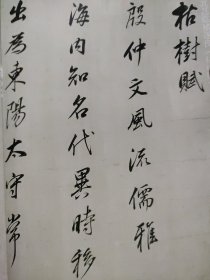 枯樹賦
殷仲文風流儒雅
海内知名代異時移
出為東陽太守常